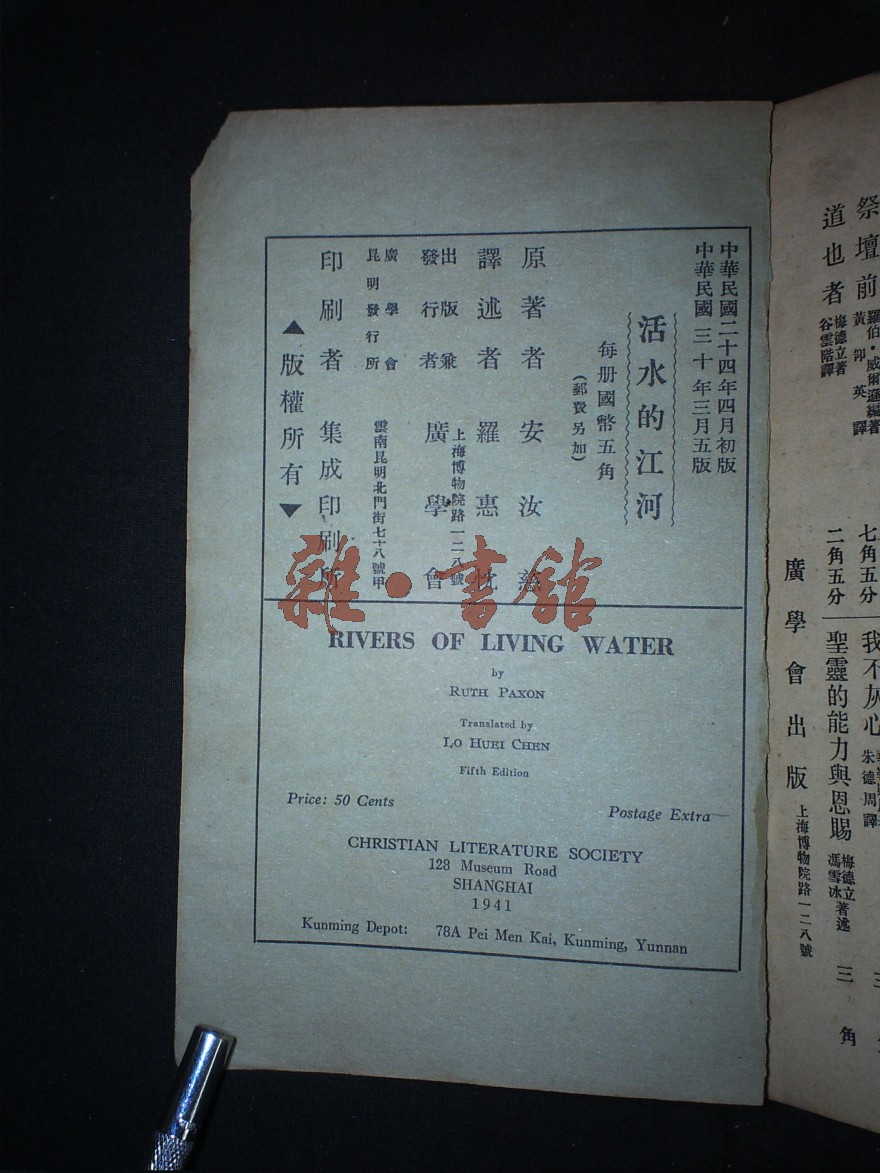 中華民國二十四年四月初版
中華民國三十年三月五版
活水的江河
每册國幣五角
(郵費另加)
原著者 安汝慈
譯述者 羅惠忱
出版兼
發行者
上海博物院路一二八號
廣學會
廣學會
昆明發行所
雲南昆明北門街七十八號甲
印刷者 集成印刷所
▲版權所有▼
雜·書館
RIVERS OF LIVING WATER
by
RUTH PAXON
Translated by
LO HUEI CHEN
Fifth Edition
Price: 50 Cents
Postage Extra
CHRISTIAN LITERATURE SOCIETY
128 Museum Road
SHANGHAI
1941
Kunming Depot: 78A Pei Men Kai, Kunming, Yunnan
祭壇前
羅伯·威爾遜編著
黃卬英譯
七角五分
道也者
梅德立著
谷雲階譯
二角五分
我不灰心
朱德周譯
聖靈的能力與恩賜
梅德立著述
馮雪冰
三角
廣學會出版
上海博物院路一二八號